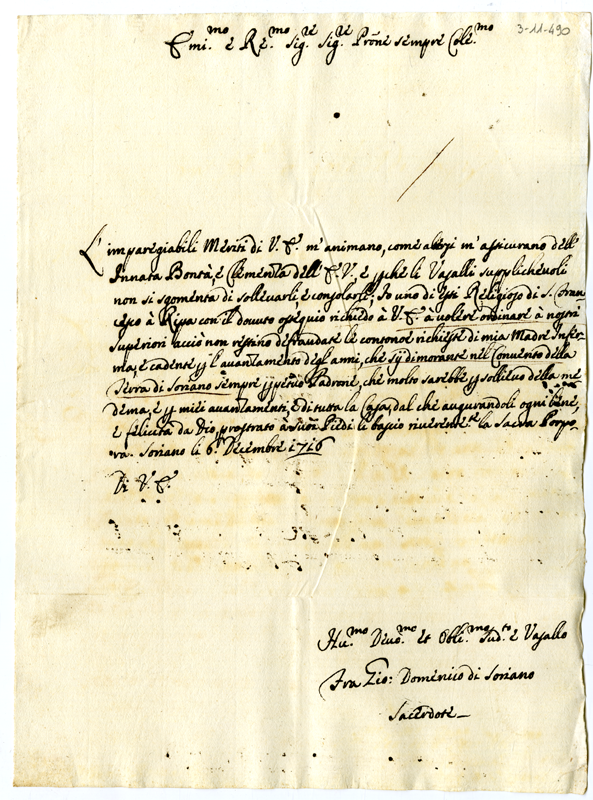 3-11-490
E.mi.mo e Re.mo Sig.re Sig.re Prōne sempre Cole.mo
L'impareggiabili Meriti di V. E. m'animano, come altresì m'assicurano dell'
Innata Bontà, e Clemenza dell'E. V. e pche li Vasalli supplichevoli
non si sgomenta di sollevarli, e consolarli; Io uno di essi Religioso di S. Fran-
cesco à Ripa con il dovuto ossequio richiedo à V. E. à volere ordinare à nostri
Superiori acciò non restino defraudate le consonde richieste di mia Madre Infer-
ma, e cadente p l'avanzamento degl'anni, che sij dimorante nel Convento della
Terra di Soriano sempre mio Padrone, che molto sarebbe p sollievo della me-
dema, e p miei avanzamenti, e di tutta la Casa, dal che augurandoli ogni bene,
e felicità da Dio, prostrato à suoi Piedi li bascio riverente.te la Sacra Porpo-
ra. Soriano li 6. Decembre 1716
Di V. E.
Hu.mo Devo.mo et Obli.mo Sud.to e Vasallo
Fra Gio: Domenico di Soriano
Sacerdote